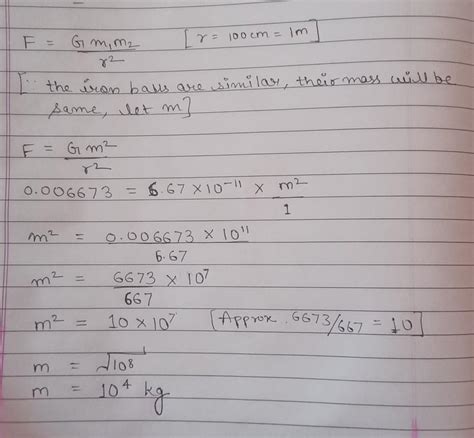 F = G m₁m₂/r² [r = 100cm = 1m]
[∵ the iron balls are similar, their mass will be
same, let m]
F = G m²/r²
0.006673 = 6.67 × 10⁻¹¹ × m²/1
m² = 0.006673 × 10¹¹/6.67
m² = 6673 × 10⁷/667
m² = 10 × 10⁷ [Approx. 6673/667 = 10]
m = √10⁸
m = 10⁴ kg